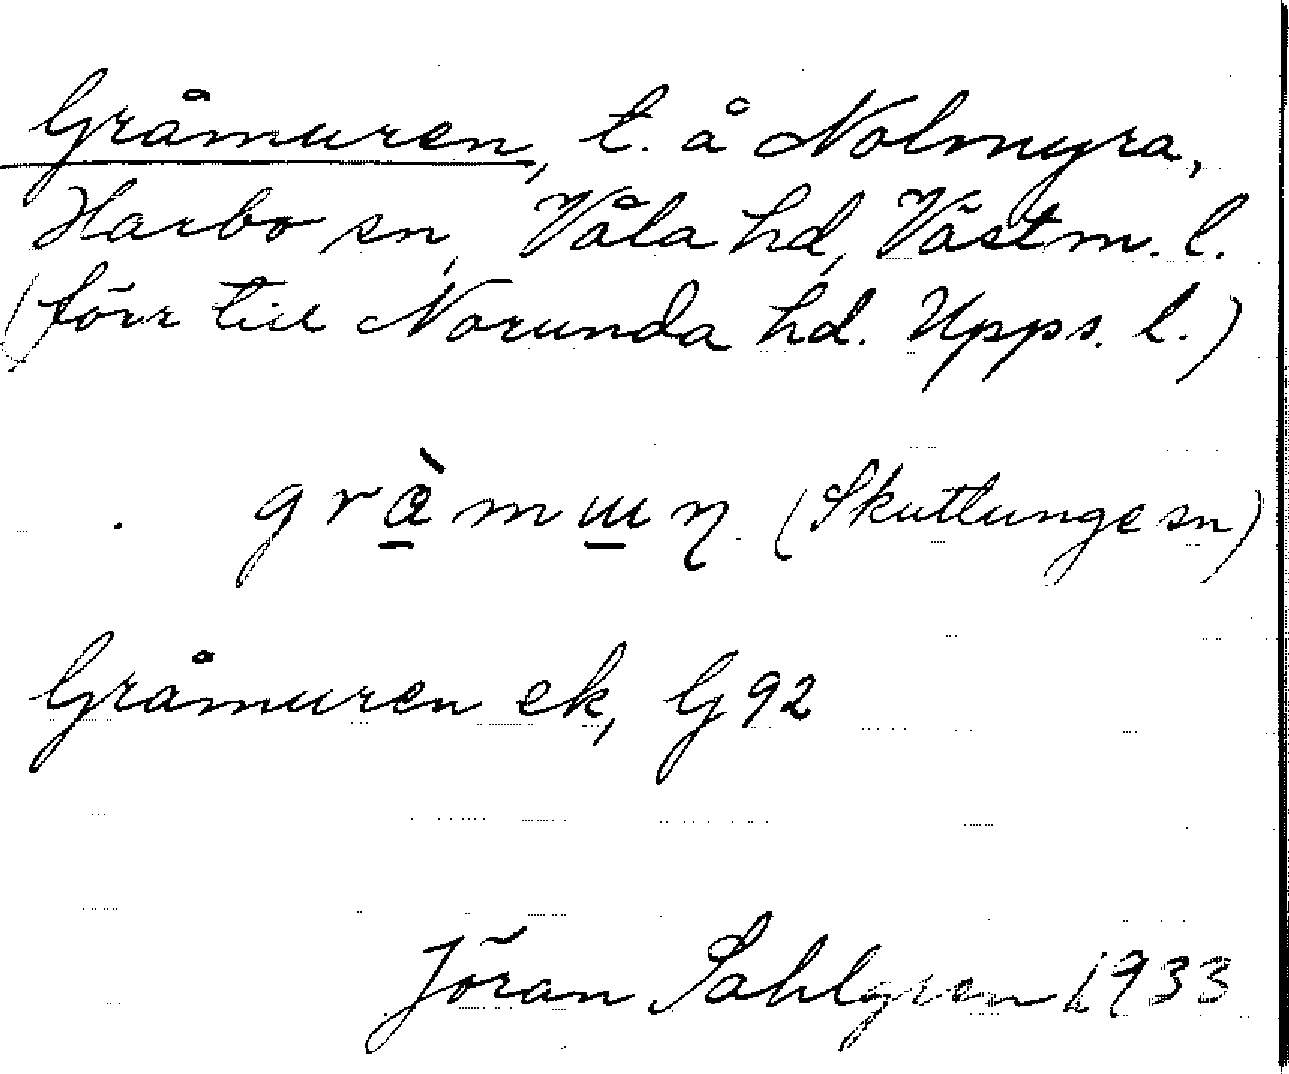 Gråmuren, t. å Nolmyra,
Harbo sn, Våla hd, Västm. l.
(förr till Norunda hd. Upps. l.)
(Skuttunge sn)
Gråmuren ek, G92
Jöran Sahlgren 1933